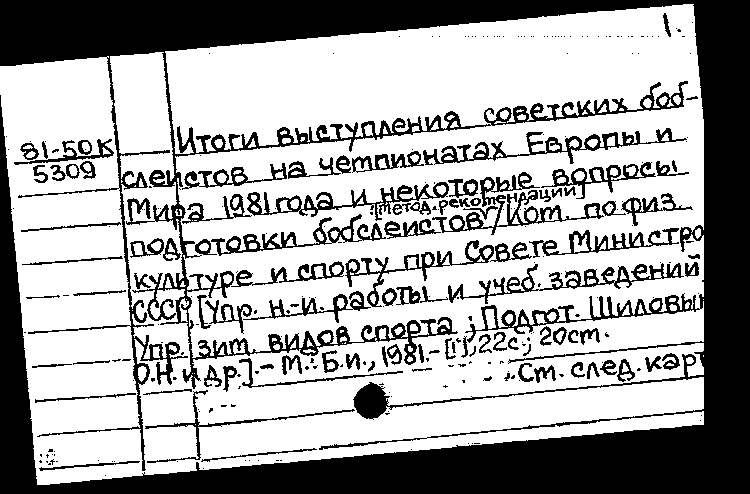 1.
81-50К
5309
Итоги выступления советских боб-
слеистов на чемпионатах Европы и
Мира 1981 года и некоторые вопросы
[метод. рекомендации]
подготовки бобслеистов / Ком. по физ.
культуре и спорту при Совете Министро
СССР, [Упр. н.-и. работы и учеб. заведений,
Упр. зим. видов спорта ; Подгот. Шиловым
О.Н. и др.] .- М. : Б.и., 1981.- [1], 22с.; 20см.
См. след. карт